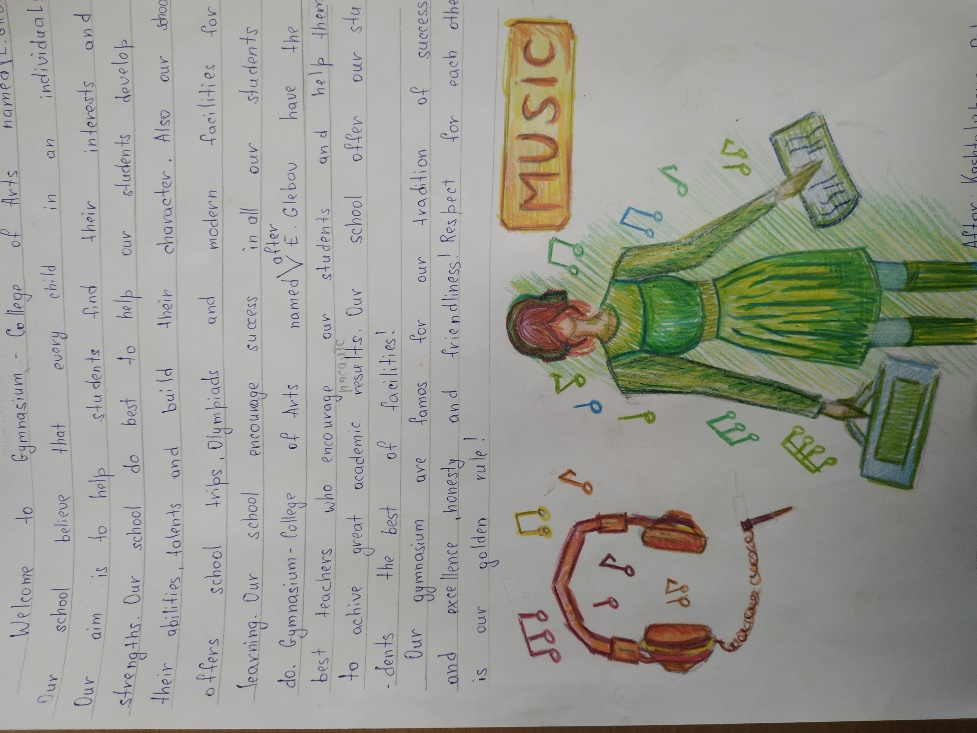 Welcome to Gymnasium - College of Arts named
Our school believe that every child in an individual.
Our aim is to help students find their interests and
strengths. Our school do best to help our students develop
their abilities, talents and build their character. Also our school
offers school trips, Olympiads and modern facilities for
learning. Our school encourage success in all our students
after
do. Gymnasium-College of Arts named V E. Glebov have the
best teachers who encourage our students and help them
to achive great academic results. Our school offer our stu
-dents the best of facilities!
Our gymnasium are famos for our tradition of success
and excellence, honesty and friendliness! Respect for each othe
is our golden rule!
MUSIC
After